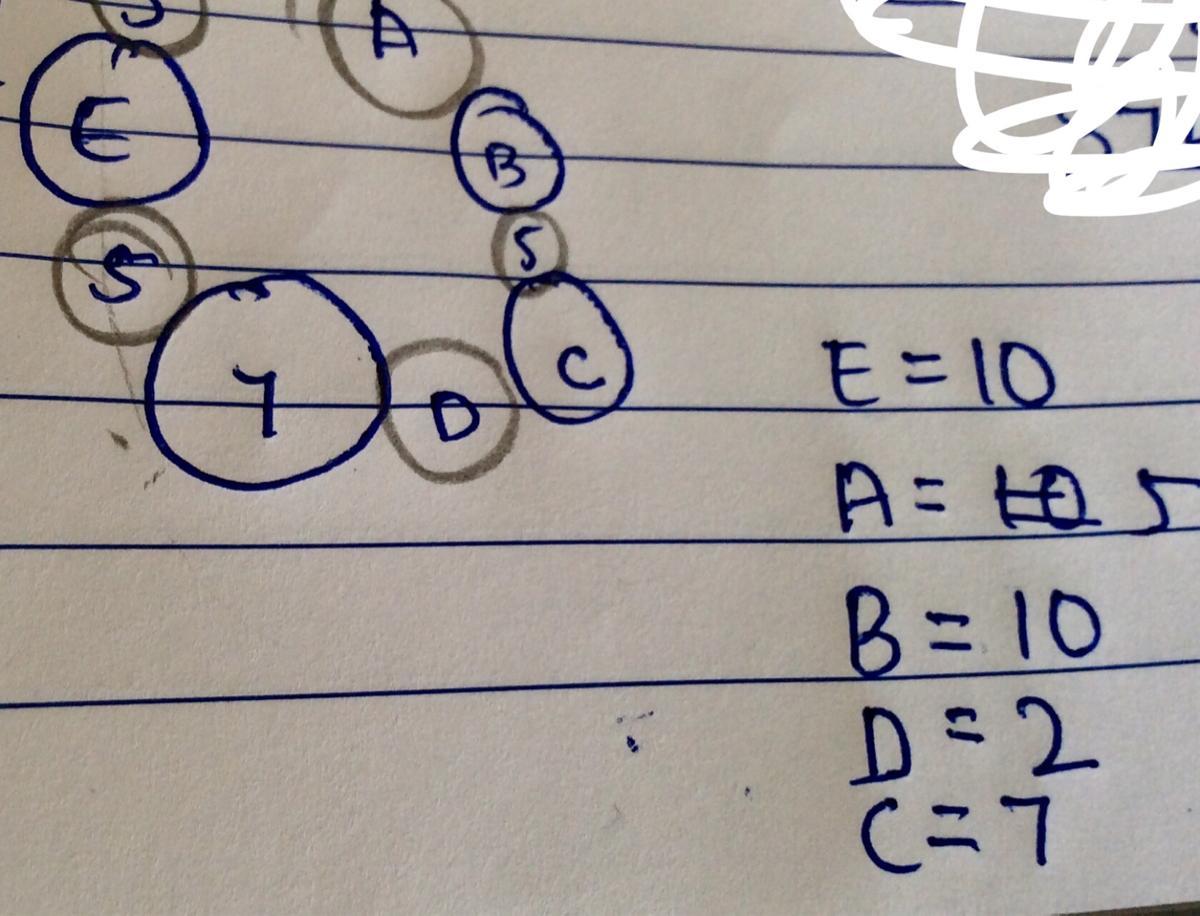 A
E
B
5
5
7
C
D
E = 10
A = 10 5
B = 10
D = 2
C = 7